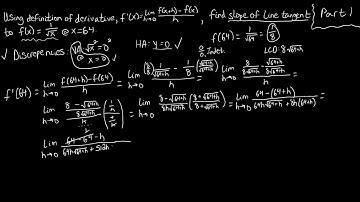 Using definition of derivative, f'(x)=lim h→0 f(x+h)-f(x)/h, find slope of line tangent
to f(x) = 1/√x @ x=64.
Part 1
√ Discrepencies: VA @ √x=0 x=0 √
HA: y=0 √
f(64) = 1/√64 = 1/8
0/0, Indet.
LCD: 8√64+h
f'(64) = lim h→0 f(64+h)-f(64)/h = lim h→0 1/√64+h - 1/8 / h = lim h→0 8/8√64+h - √64+h/8√64+h / h =
lim h→0 8-√64+h/8√64+h / h (1/h / 1/h) = lim h→0 8-√64+h/8h√64+h (8+√64+h/8+√64+h) = lim h→0 64-(64+h)/64h√64+h + 8h(64+h) =
lim h→0 64-64-h/64h√64+h + 512h